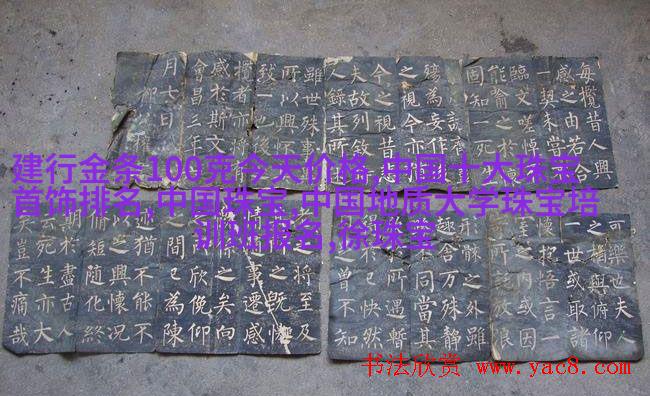 每攬昔人興
感之由若合
一契未嘗
臨文嗟悼
能喻之
固知一死生
殤為妄作
之視今亦
今之視昔
夫故列
人錄其所
雖世殊事
所以興
致一也後
攬者
感於斯文
會昌三年
月七日
建行金条100克今天价格,中国十大珠宝
首饰排名,中国珠宝,中国地质大学珠宝培
训班报名,徐珠宝
可樂也夫人
之相與俯仰
一世或取諸
懷抱悟言一
室之內或因
所託放浪
形骸之外雖
趣舍万殊靜
不同當其
所遇暫
得於己快然
曾不知
老之將至及
之既
情隨事遷感
之矣向
之所欣俛仰
之間已為陳
迹猶不能不
以之興懷況
脩短隨化終
期於盡古人
云死生亦大
矣豈不痛哉
书法欣赏 www.yac8.com